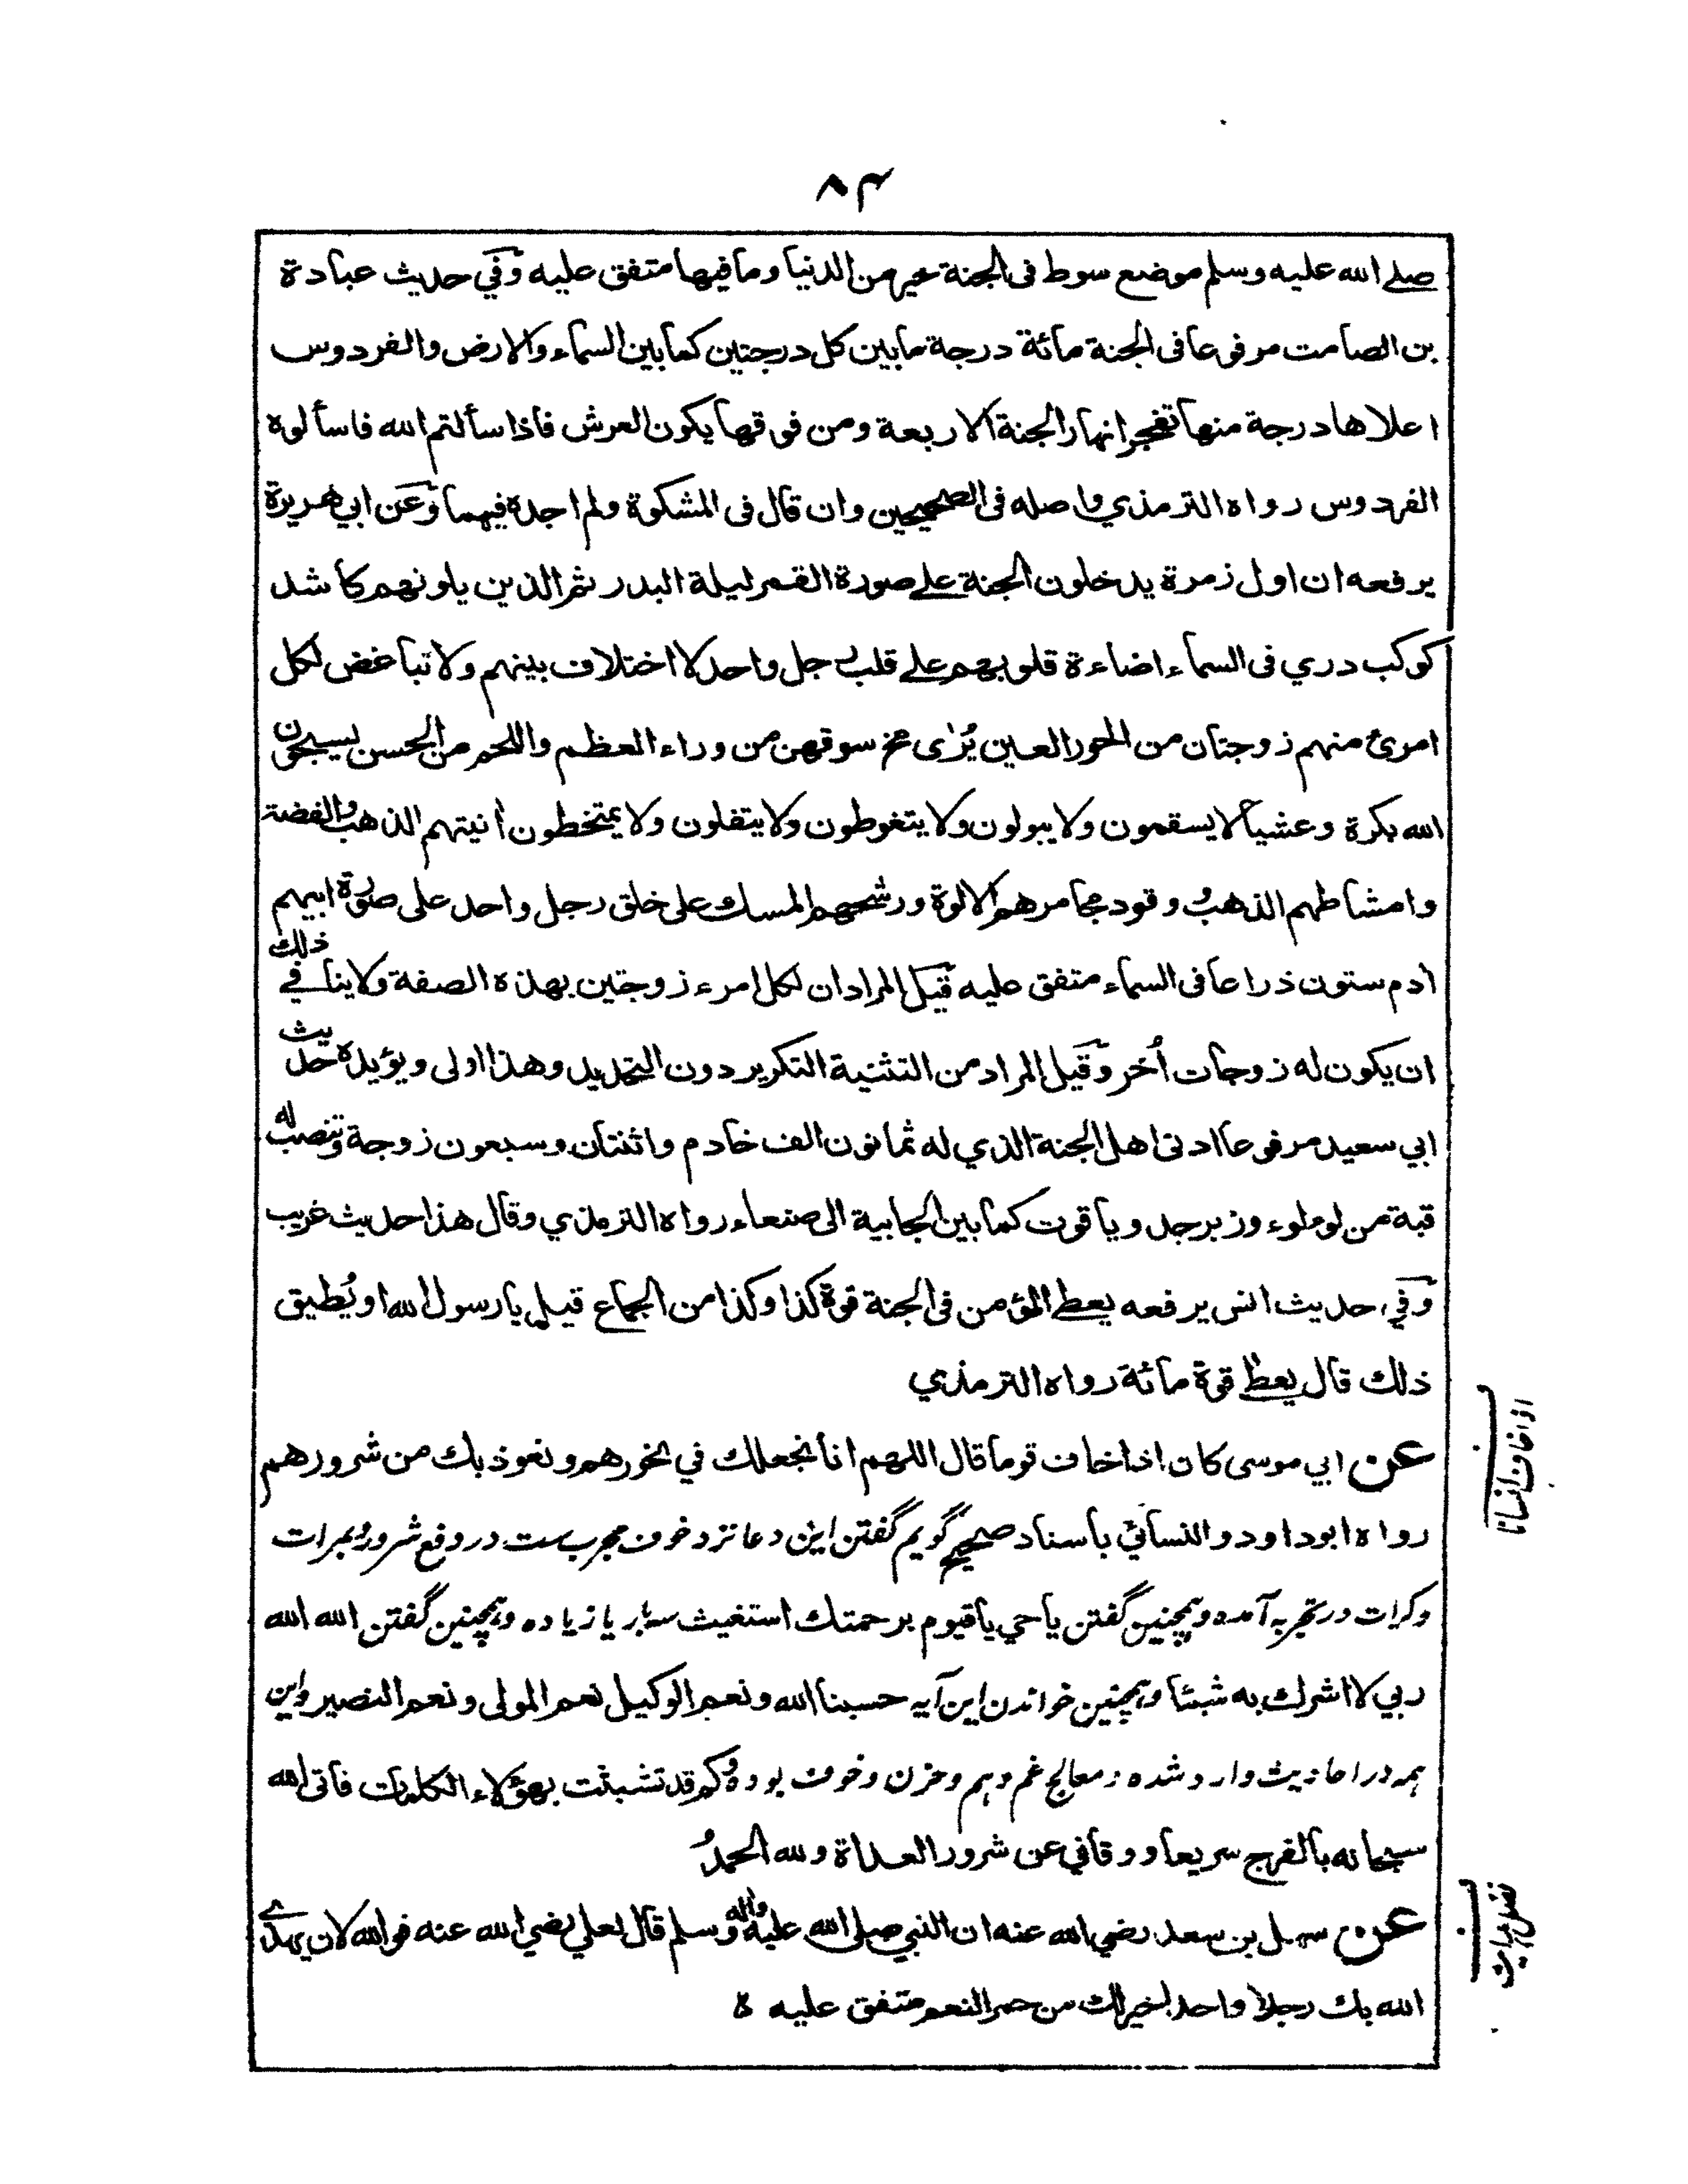 ٨٣
صلے الله عليه وسلم موضع سوط فى الجنة خير من الدنيا وما فيها متفق عليه وَفي حديث عبادة
بن الصامت مرفوعا فى الجنة مائة درجة ما بين كل درجتين كما بين السماء والارض والفردوس
اعلاها درجة منها تفجر انهار الجنة الاربعة ومن فوقها يكون العرش فاذا سألتم الله فاسألوه
الفردوس رواه الترمذي واصله فى الصحيحين وان قال فى المشكوة ولم اجده فيهما وَعَن ابي هريرة
يرفعه ان اول زمرة يدخلون الجنة علے صورة القمر ليلة البدر ثم الذين يلونهم كاشد
كوكب دري فى السماء اضاءة قلوبهم علے قلب رجل واحد لا اختلاف بينهم ولا تباغض لكل
امرئ منهم زوجتان من الحور العين يُرٰى مخ سوقهن من وراء العظم واللحم من الحسن يسبحون
الله بكرة وعشيا لا يسقمون ولا يبولون ولا يتغوطون ولا يتفلون ولا يمتخطون أنيتهم الذهب والفضة
وامشاطهم الذهبُ وقود مجامرهم الالوة ورشحهم المسك على خلق رجل واحد على صورة ابيهم
ادم ستون ذراعا فى السماء متفق عليه قَيل المراد ان لكل امرء زوجتين بهذه الصفة ولا ينافي ذلك
ان يكون له زوجات أُخر وَقَيل المراد من التثنية التكرير دون التحديد وهذا اولى ويؤيده حديث
ابي سعيد مرفوعا ادنى اهل الجنة الذي له ثمانون الف خادم واثنتان وسبعون زوجة وتنصب له
قبة من لوملوء وزبرجد وياقوت كما بين الجابية الى صنعاء رواه الترمذي وقال هذا حديث غريب
وَفي حديث انس يرفعه يعطے المؤمن فى الجنة قوة كذا وكذا من الجماع قيل يا رسول الله او يُطيق
ذلك قال يعطےٰ قوة مائة رواه الترمذي
عن ابي موسى كان اذا خاف قوما قال اللهم انا نجعلك في نحورهم ونعوذ بك من شرورهم
رواه ابوداود والنسائي باسناد صحيح گويم گفتن اين دعا نزد خوف مجرب ست در دفع شرور بمرات
وكرات در تجربه آمده وهمچنين گفتن يا حي يا قيوم برحمتك استغيث سه بار يا زياده وهمچنين گفتن الله الله
ربي لا اشرك به شيئا وهمچنين خواندن اين آيه حسبنا الله ونعم الوكيل نعم المولى ونعم النصير واين
همه در احاديث وارد شده ومعالج غم وهم وحزن وخوف بوده وكم قد تشبثت بهؤلاء الكلمات فاتى الله
سبحانه بالفرج سريعا ووقاني عن شرور العداة ولله الحمدُ
عن سهل بن سعد رضي الله عنه ان النبي صلى الله عليه واله وسلم قال لعلي رضي الله عنه فوالله لان يهدے
الله بك رجلا واحدا خير لك من حمر النعم متفق عليه ه
اذا خاف انسانا
فضل هدايت